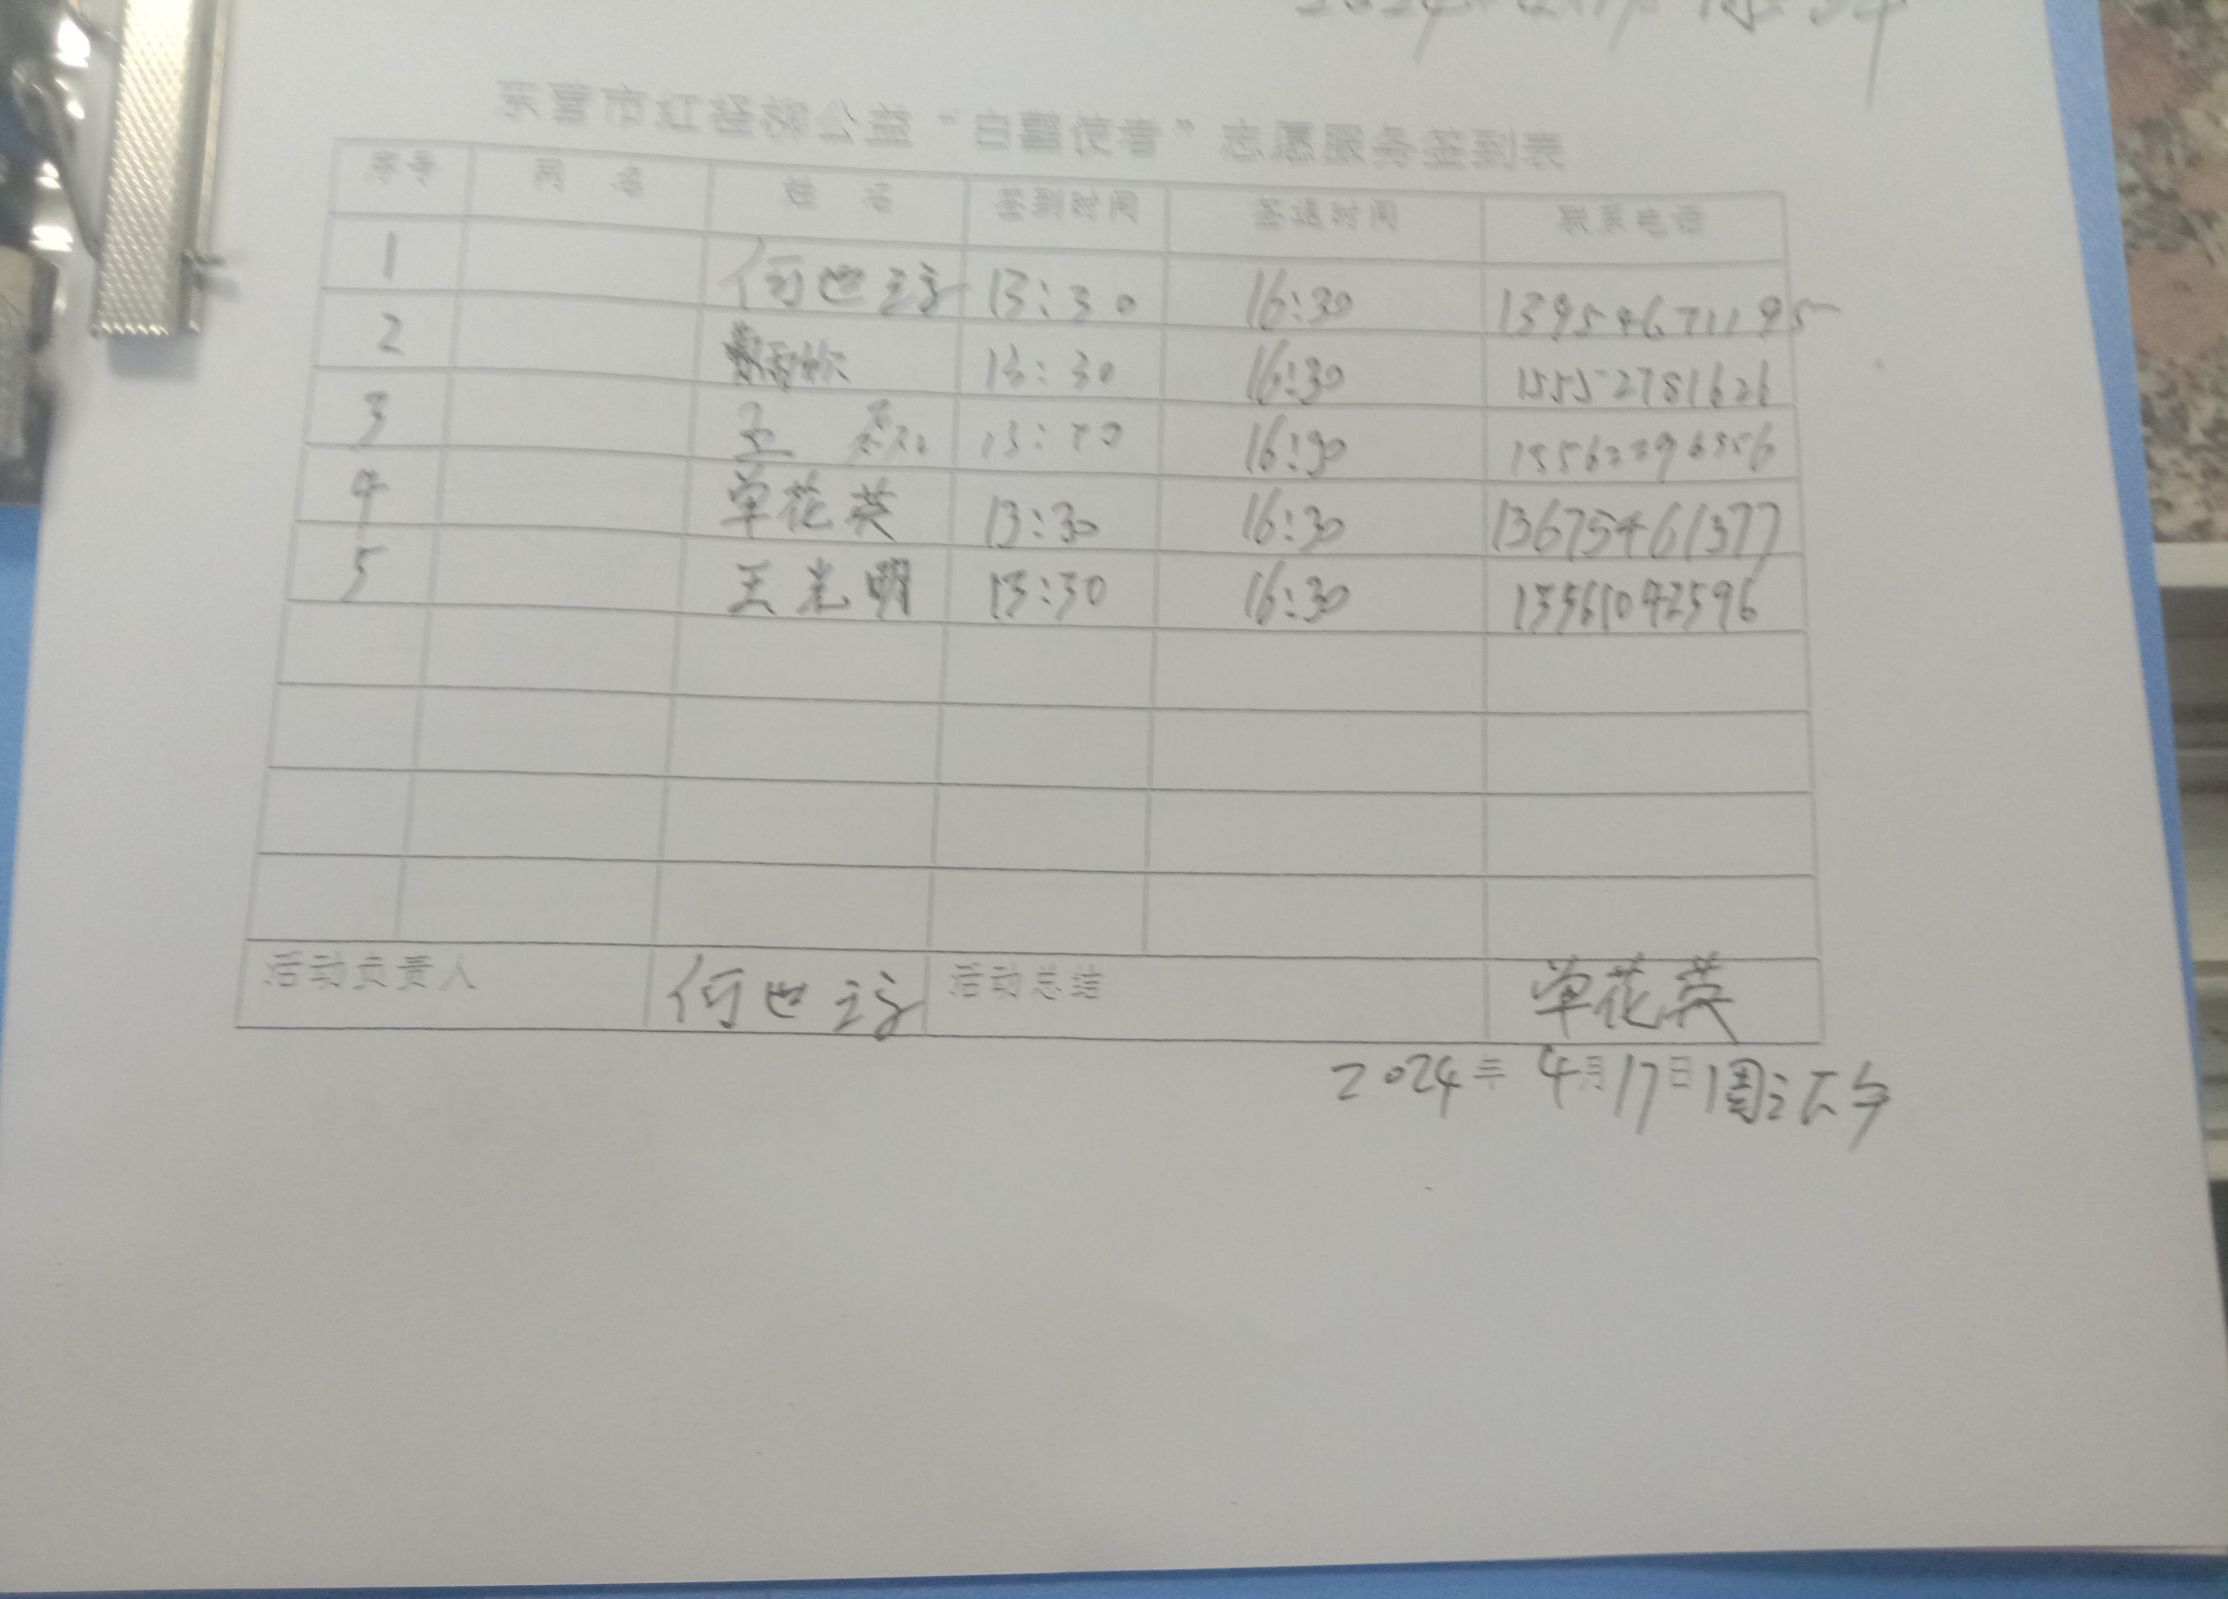 东营市红柽柳公益“白鹭使者”志愿服务签到表
序号 网名 姓名 签到时间 签退时间 联系电话
1 何世 13:30 16:30 13954671195
2 13:30 16:30 15552781626
3 王 13:30 16:30
4 单花英 13:30 16:30 13675461377
5 王光明 13:30 16:30 13561042596
活动负责人 何世 活动总结 单花英
2024年4月17日周三下午